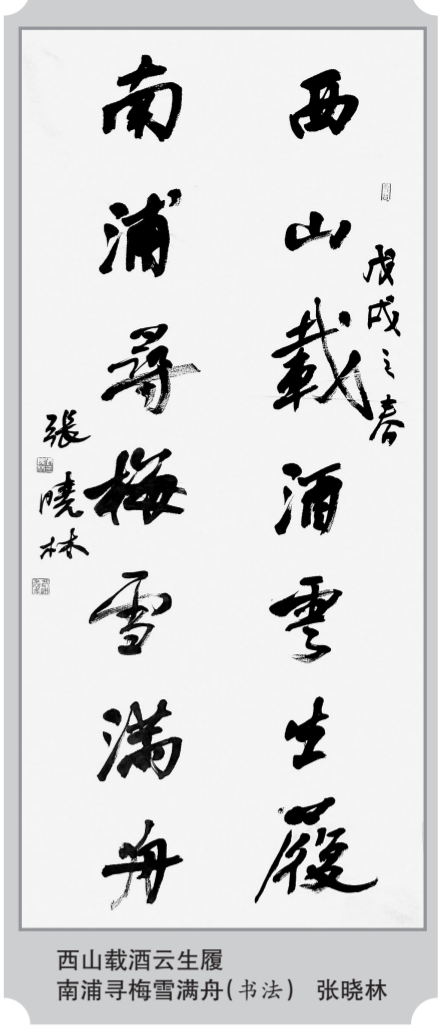 西山載酒雲生履
戊戌之春
南浦尋梅雪滿舟
張曉林
西山载酒云生履
南浦寻梅雪满舟(书法) 张晓林